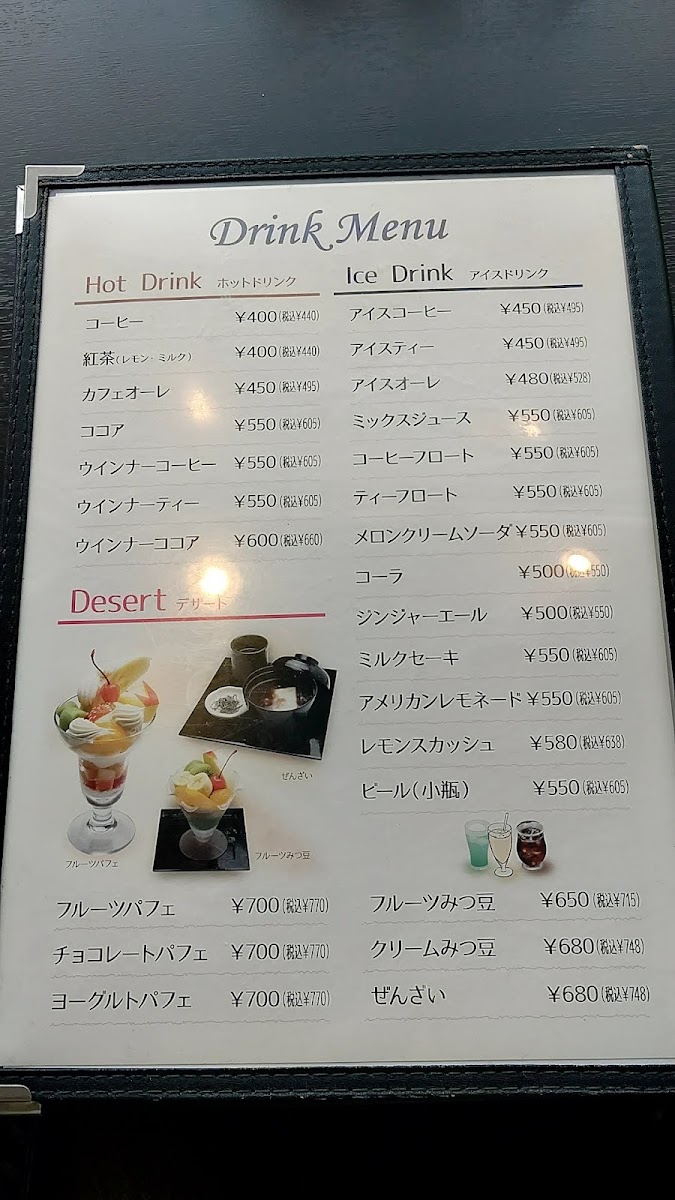 Drink Menu
Hot Drink ホットドリンク
コーヒー ¥400(税込¥440)
紅茶(レモン・ミルク) ¥400(税込¥440)
カフェオーレ ¥450(税込¥495)
ココア ¥550(税込¥605)
ウインナーコーヒー ¥550(税込¥605)
ウインナーティー ¥550(税込¥605)
ウインナーココア ¥600(税込¥660)
Ice Drink アイスドリンク
アイスコーヒー ¥450(税込¥495)
アイスティー ¥450(税込¥495)
アイスオーレ ¥480(税込¥528)
ミックスジュース ¥550(税込¥605)
コーヒーフロート ¥550(税込¥605)
ティーフロート ¥550(税込¥605)
メロンクリームソーダ ¥550(税込¥605)
コーラ ¥500(税込¥550)
ジンジャーエール ¥500(税込¥550)
ミルクセーキ ¥550(税込¥605)
アメリカンレモネード ¥550(税込¥605)
レモンスカッシュ ¥580(税込¥638)
ビール(小瓶) ¥550(税込¥605)
Desert デザート
ぜんざい
フルーツパフェ
フルーツみつ豆
フルーツパフェ ¥700(税込¥770)
チョコレートパフェ ¥700(税込¥770)
ヨーグルトパフェ ¥700(税込¥770)
フルーツみつ豆 ¥650(税込¥715)
クリームみつ豆 ¥680(税込¥748)
ぜんざい ¥680(税込¥748)